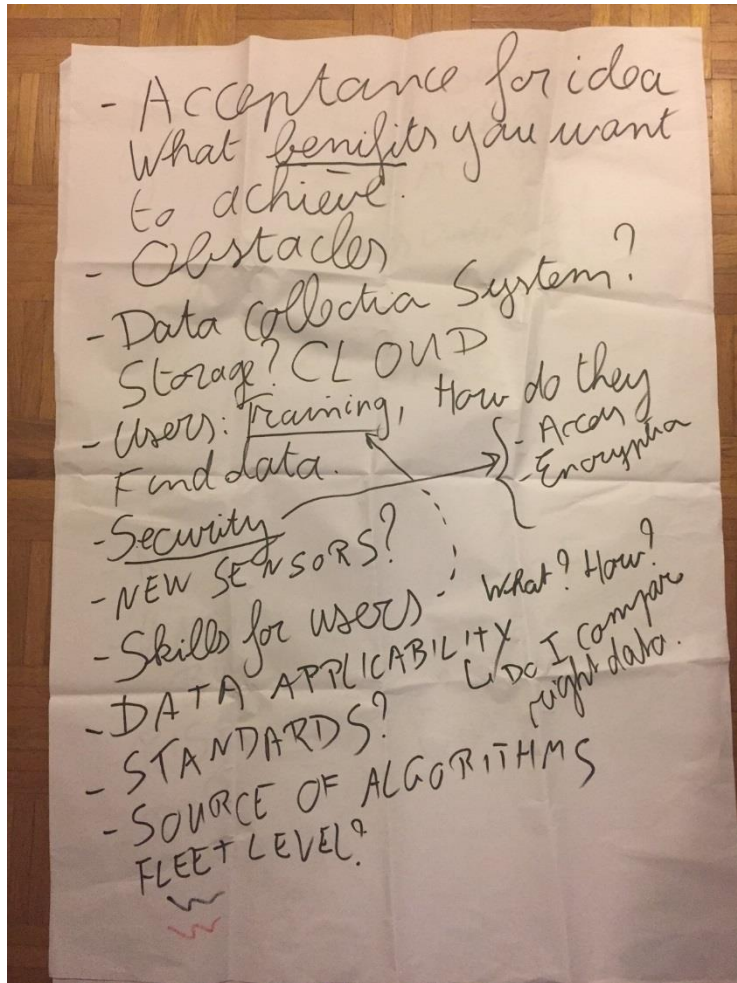 - Acceptance for idea
What benifits you want
to achieve.
- Obstacles
- Data Collectia System?
Storage? CLOUD
- Users: Training, How do they
Find data.
- Acces
- Encryptia
- Security
- NEW SENSORS?
- Skills for users
What? How?
- DATA APPLICABILITY
Do I compare
right data.
- STANDARDS?
- SOURCE OF ALGORITHMS
FLEET LEVEL?